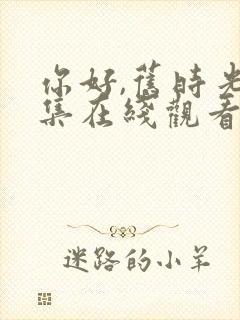 你好,舊時光
集在綫觀看
迷路的小羊